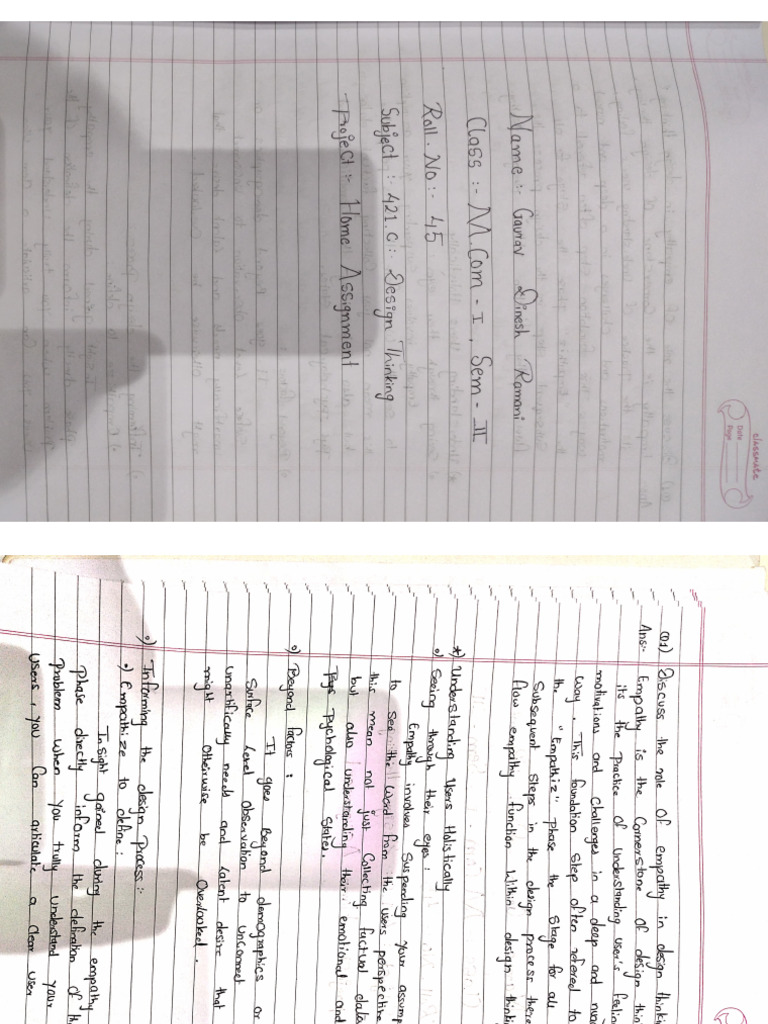 classmate
Date
Page
Name :- Gaurav Dinesh Ramani
Class :- M.Com - I, Sem - II
Roll. No :- 45
Subject :- 421.C :- Design Thinking
Project :- Home Assignment
Q1) Discuss the role of empathy in design thinki
Ans:- Empathy is the Cornerstone of design thin
its the practice of understanding user's feelin
motivations and challenges in a deep and nua
way. This foundation step often refered to
the "Empathiz" phase the stage for all
Subsequent steps in the design process there
flow empathy function within design thinki
*) Understanding Users Holistically
•) Seeing through their eyes :
Empathy involves Suspending your assump
to see the Word from the users perspective
this mean not just Collecting factual data
but also understanding their emotional and
Psychological States.
•) Beyond factors :
It goes Beyond demographics or
Surface Level observation to unconnect
unartifically needs and Latent desire that
might Otherwise be Overlooked.
•) Informing the design process :-
•) Empathize to define :
Insight gained during the empathy
phase directly inform the defination of th
Problem when you trully understand your
users, you Can articulate a Clear user